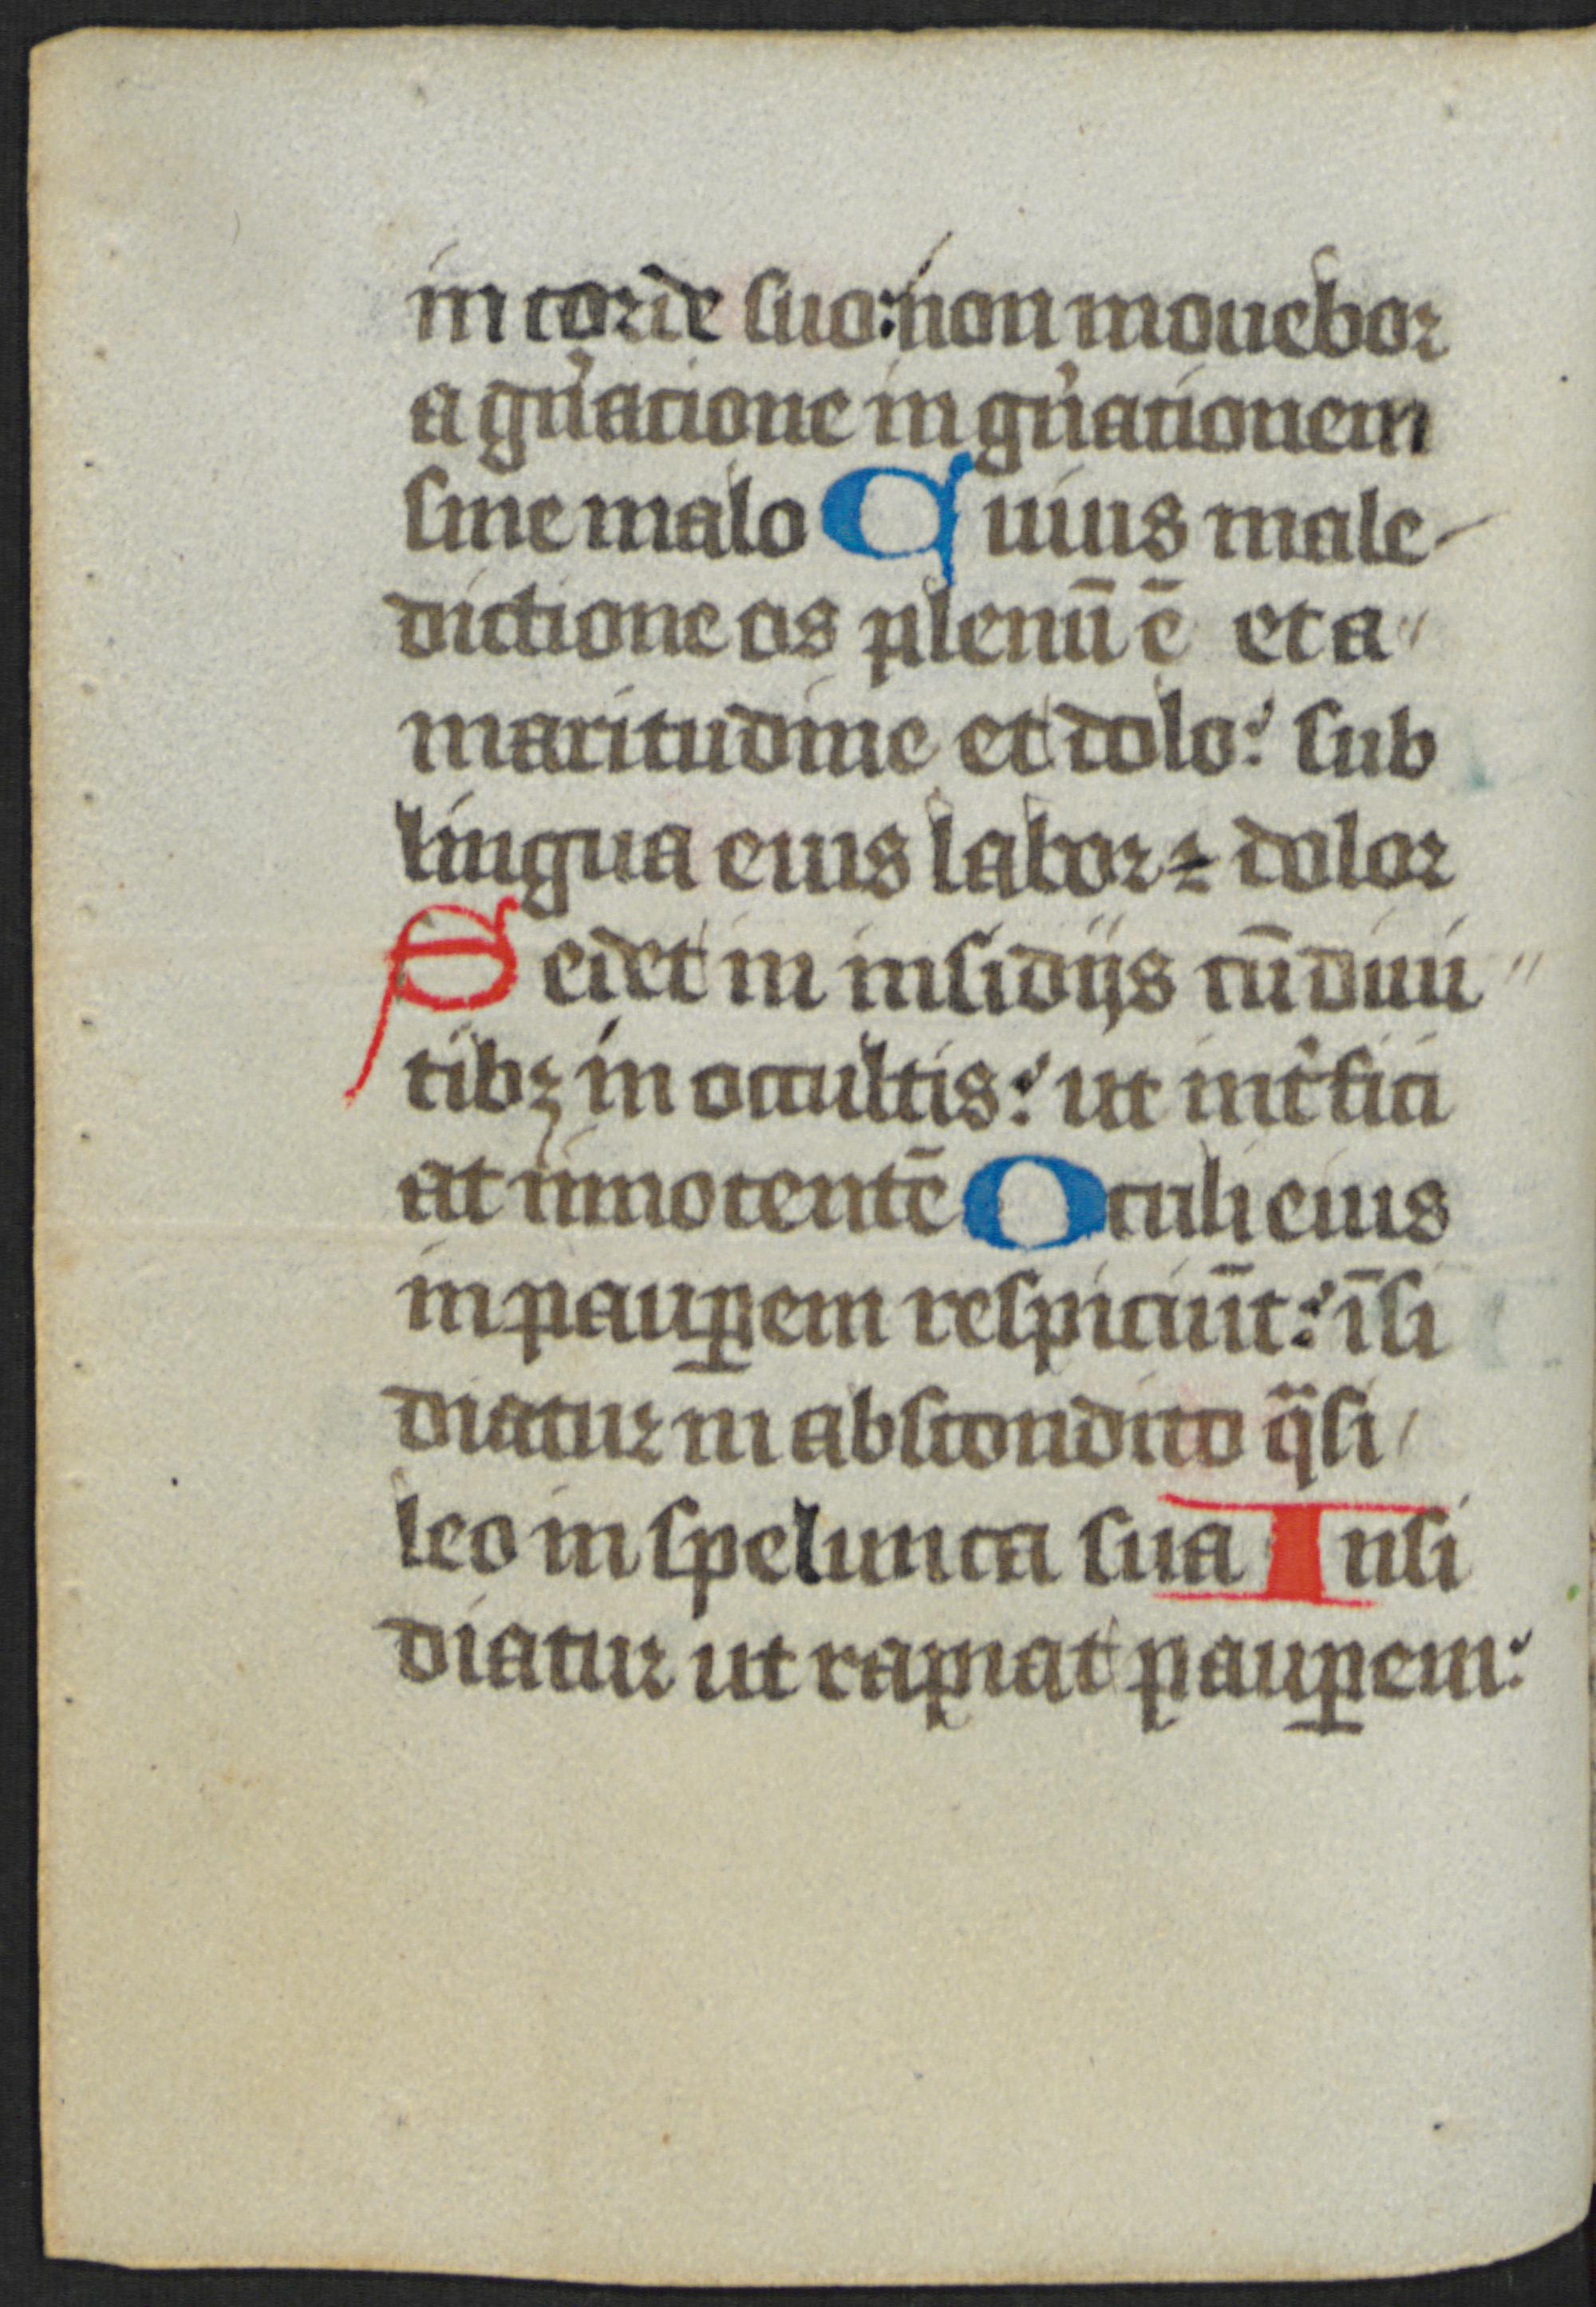 in corde suo: non mouebor
a gn̓atione in gn̓ationem
sine malo Cuius male-
dictione os plenū ē et a〃
maritudine et dolo: sub
lingua eius labor ⁊ dolor
Sedet in insidijs cū diui〃
tibꝫ in occultis: ut int̓fici
at innocentē Oculi eius
in pauꝑem respiciūt: īsi
diatur in abscondito q̈si
leo in spelunca sua Insi
diatur ut rapiat pauꝑem: